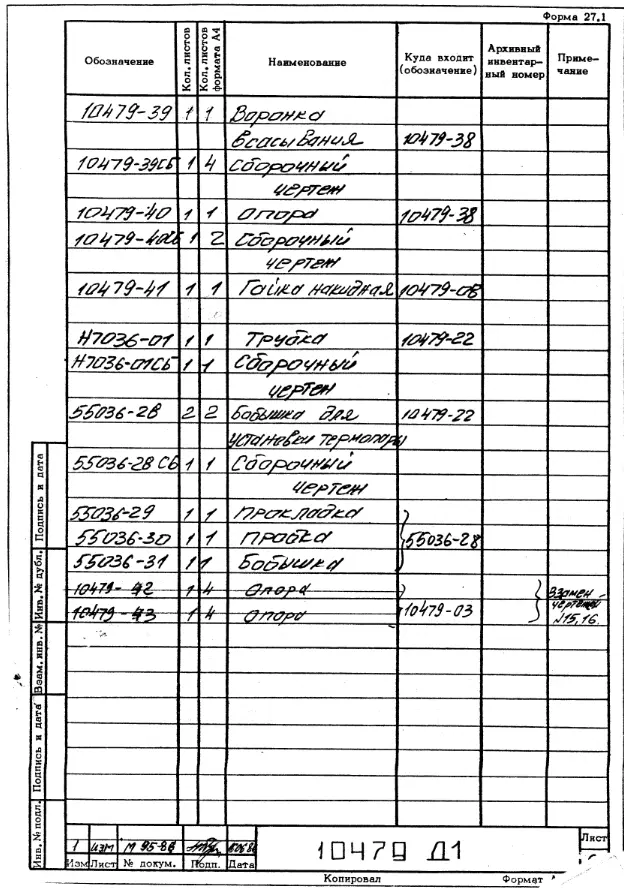 Форма 27.1
Обозначение Кол. листов Кол. листов формата А4 Наименование Куда входит (обозначение) Архивный инвентар- ный номер Приме- чание
10479-39 1 1 Воронка
всасывания 10479-38
10479-39СБ 1 4 Сборочный
чертеж
10479-40 1 1 Опора 10479-38
10479-40СБ 1 2 Сборочный
чертеж
10479-41 1 1 Гайка накидная 10479-08
Н7036-01 1 1 Трубка 10479-22
Н7036-01СБ 1 1 Сборочный
чертеж
55036-28 2 2 Бобышка для 10479-22
установки термопары
55036-28 СБ 1 1 Сборочный
чертеж
55036-29 1 1 Прокладка
55036-30 1 1 Пробка 55036-28
55036-31 1 1 Бобышка
10479-42 1 4 Опора Взамен
10479-43 1 4 Опора 10479-03 чертежей
№15,16.
Подпись и дата
Инв. № дубл.
Взам. инв. №
Подпись и дата
Инв. № подл.
1 изм М 95-86
Изм Лист № докум. Подп. Дата
10479 Д1
Лист
Копировал Формат